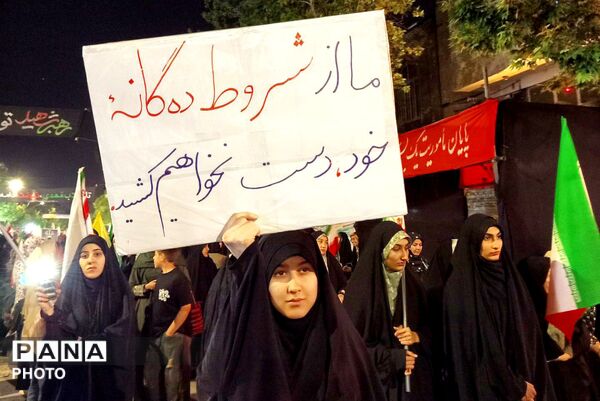 ما از شروط ده‌گانهٔ
خود، دست نخواهیم کشید.
رهبر شهید تو
پایان مأموریت یک
PANA
PHOTO